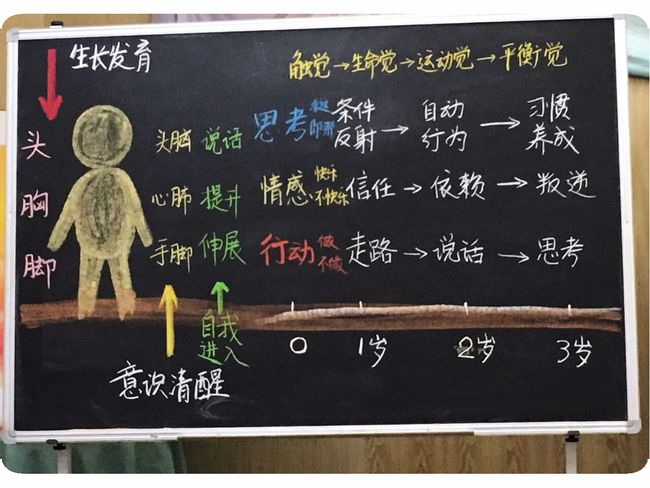 生长发育
触觉→生命觉→运动觉→平衡觉
头 头脑 说话 思考 条件反射→自动行为→习惯养成
胸 心肺 提升 情感 快乐 不快乐 信任→依赖→叛逆
脚 手脚 伸展 行动 做 不做 走路→说话→思考
自我进入
0 1岁 2岁 3岁
意识清醒